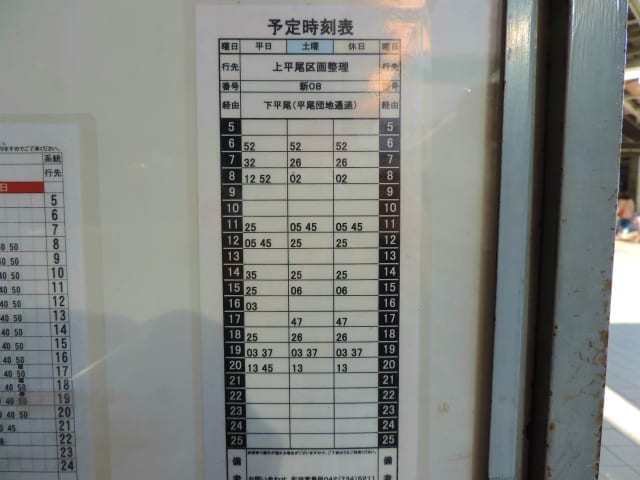 予定時刻表
曜日 平日 土曜 休日 曜日
行先 上平尾区画整理 行先
番号 新08 番号
経由 下平尾(平尾団地通過) 経由
5 5
6 52 52 52 6
7 32 26 26 7
8 12 52 02 02 8
9 9
10 10
11 25 05 45 05 45 11
12 05 45 25 25 12
13 13
14 35 25 25 14
15 25 06 06 15
16 03 16
17 47 47 17
18 25 26 26 18
19 03 37 03 37 03 37 19
20 13 45 13 13 20
21 21
22 22
23 23
24 24
25 25
備
備
お問い合わせ 町田営業所042(734)5211
りますのでご了承ください。
系統
行先
日
5
6
7
40 50 8
40 50 9
40 50 10
40 50 11
40 50 12
40 50 13
40 50 14
40 50 15
40 50 16
17
40 50 18
40 50 19
40 50 20
45 21
22
23
24